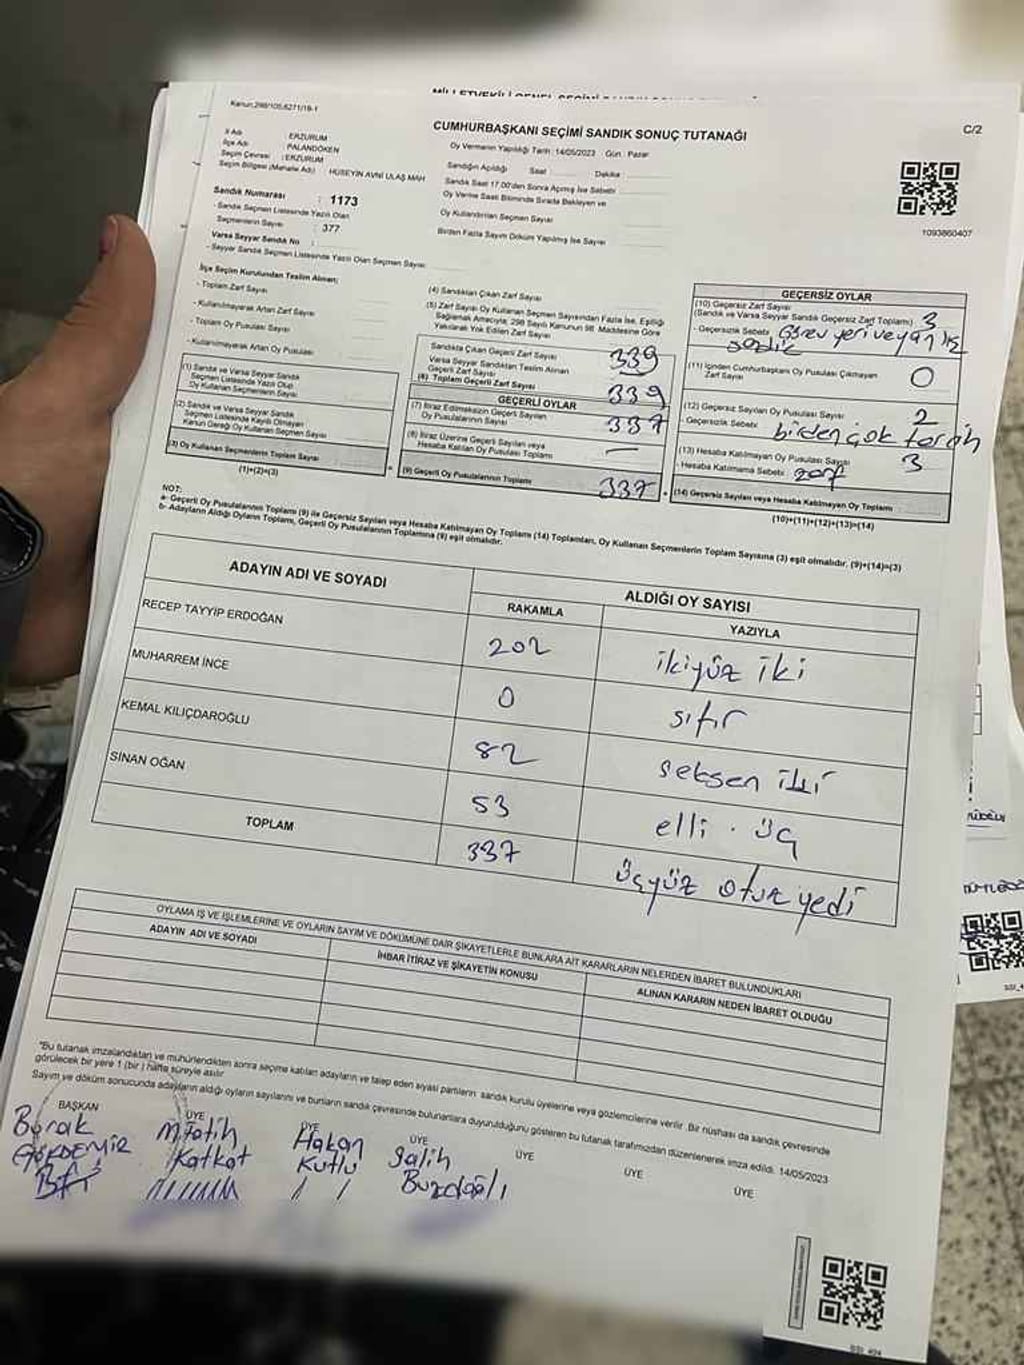 Kanun;298/105,6271/19-1
CUMHURBAŞKANI SEÇİMİ SANDIK SONUÇ TUTANAĞI
C/2
İl Adı : ERZURUM
İlçe Adı : PALANDÖKEN
Seçim Çevresi : ERZURUM
Seçim Bölgesi (Mahalle Adı) : HÜSEYİN AVNİ ULAŞ MAH
Sandık Numarası : 1173
- Sandık Seçmen Listesinde Yazılı Olan
Seçmenlerin Sayısı : 377
Varsa Seyyar Sandık No :
- Seyyar Sandık Seçmen Listesinde Yazılı Olan Seçmen Sayısı
Oy Vermenin Yapıldığı Tarih : 14/05/2023 Gün : Pazar
Sandığın Açıldığı Saat Dakika
Sandık Saat 17.00'den Sonra Açılmış İse Sebebi
Oy Verme Saati Bitiminde Sırada Bekleyen ve
Oy Kullandırılan Seçmen Sayısı
Birden Fazla Sayım Döküm Yapılmış İse Sayısı
1093860407
İlçe Seçim Kurulundan Teslim Alınan;
- Toplam Zarf Sayısı
- Kullanılmayarak Artan Zarf Sayısı
- Toplam Oy Pusulası Sayısı
- Kullanılmayarak Artan Oy Pusulası
(1) Sandık ve Varsa Seyyar Sandık
Seçmen Listesinde Yazılı Olup
Oy Kullanan Seçmen Sayısı
(2) Sandık ve Varsa Seyyar Sandık
Seçmen Listesinde Kayıtlı Olmayan
Kanun Gereği Oy Kullanan Seçmen Sayısı
(3) Oy Kullanan Seçmenlerin Toplam Sayısı
(1)+(2)=(3)
(4) Sandıktan Çıkan Zarf Sayısı
(5) Zarf Sayısı Oy Kullanan Seçmen Sayısından Fazla İse, Eşitliği
Sağlamak Amacıyla; 298 Sayılı Kanunun 98. Maddesine Göre
Yakılarak Yok Edilen Zarf Sayısı
Sandıkta Çıkan Geçerli Zarf Sayısı 339
Varsa Seyyar Sandıktan Teslim Alınan
Geçerli Zarf Sayısı
(6) Toplam Geçerli Zarf Sayısı 339
GEÇERLİ OYLAR
(7) İtiraz Edilmeksizin Geçerli Sayılan
Oy Pusulasının Sayısı 337
(8) İtiraz Üzerine Geçerli Sayılan veya
Hesaba Katılan Oy Pusulası Toplamı —
(9) Geçerli Oy Pusulalarının Toplamı 337
GEÇERSİZ OYLAR
(10) Geçersiz Zarf Sayısı
(Sandık ve Varsa Seyyar Sandık Geçersiz Zarf Toplamı) 3
- Geçersizlik Sebebi
(11) İçinden Cumhurbaşkanı Oy Pusulası Çıkmayan
Zarf Sayısı 0
(12) Geçersiz Sayılan Oy Pusulası Sayısı 2
- Geçersizlik Sebebi birden çok tercih
(13) Hesaba Katılmayan Oy Pusulası Sayısı 3
- Hesaba Katılmama Sebebi zarf
(14) Geçersiz Sayılan veya Hesaba Katılmayan Oy Toplamı
(10)+(11)+(12)+(13)=(14)
NOT:
a- Geçerli Oy Pusulalarının Toplamı (9) ile Geçersiz Sayılan veya Hesaba Katılmayan Oy Toplamı (14) Toplamları, Oy Kullanan Seçmenlerin Toplam Sayısına (3) eşit olmalıdır. (9)+(14)=(3)
b- Adayların Aldığı Oyların Toplamı, Geçerli Oy Pusulalarının Toplamına (9) eşit olmalıdır.
ADAYIN ADI VE SOYADI
ALDIĞI OY SAYISI
RAKAMLA YAZIYLA
RECEP TAYYİP ERDOĞAN 202 ikiyüz iki
MUHARREM İNCE 0 sıfır
KEMAL KILIÇDAROĞLU 82 seksen iki
SİNAN OĞAN 53 elli . üç
TOPLAM 337 üçyüz otuz yedi
OYLAMA İŞ VE İŞLEMLERİNE VE OYLARIN SAYIM VE DÖKÜMÜNE DAİR ŞİKAYETLERLE BUNLARA AİT KARARLARIN NELERDEN İBARET BULUNDUKLARI
ADAYIN ADI VE SOYADI
İHBAR İTİRAZ VE ŞİKAYETİN KONUSU
ALINAN KARARIN NEDEN İBARET OLDUĞU
"Bu tutanak imzalandıktan ve mühürlendikten sonra seçime katılan adayların ve talep eden siyasi partilerin sandık kurulu üyelerine veya gözlemcilerine verilir. Bir nüshası da sandık çevresinde
görülecek bir yere 1 (bir) hafta süreyle asılır.
Sayım ve döküm sonucunda adayların aldığı oyların sayılarını ve bunların sandık çevresinde bulunanlara duyurulduğunu gösteren bu tutanak tarafımızdan düzenlenerek imza edildi. 14/05/2023
BAŞKAN ÜYE ÜYE ÜYE ÜYE ÜYE ÜYE
Burak M Fatih Hakan Salih
GÖKDEMİR Katkat Kutlu Buzdağlı